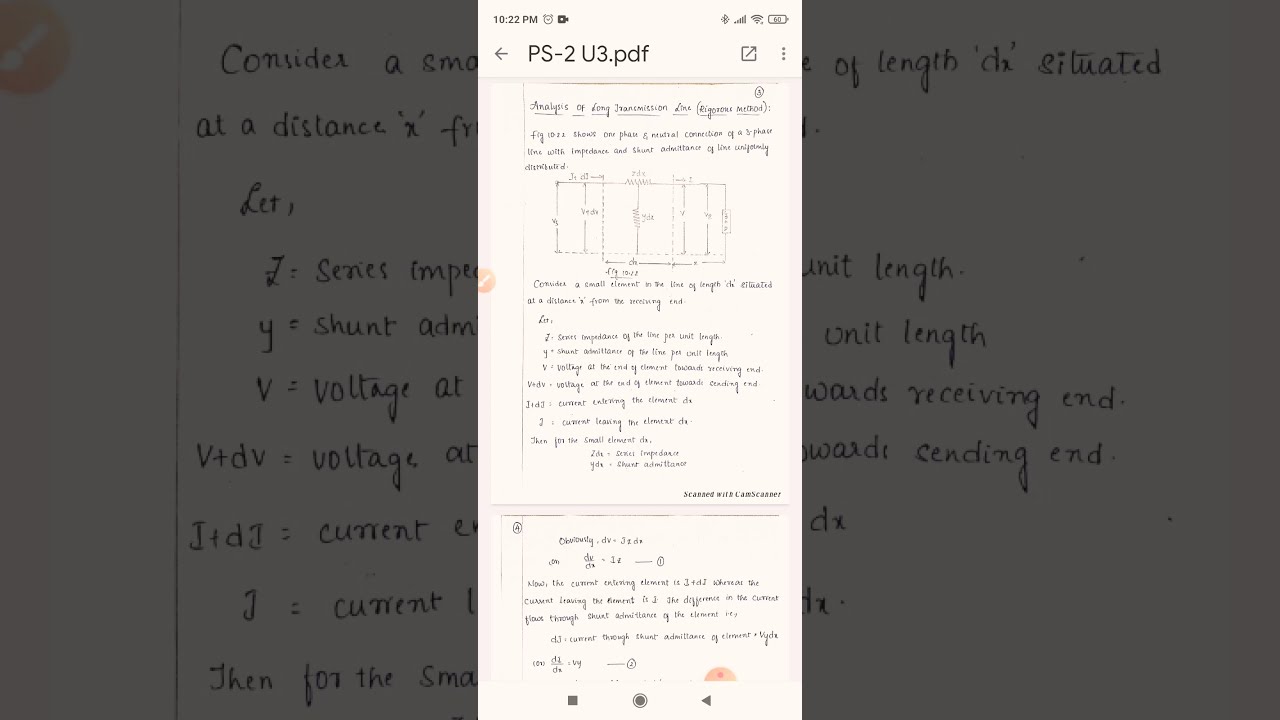 10:22 PM
60
PS-2 U3.pdf
③
Analysis Of Long Transmission Line (Rigorous Method):
Fig 10.22 shows one phase & neutral connection of a 3-phase
line with impedance and shunt admittance of line uniformly
distributed.
I+dI
zdx
I
Vs
V+dv
ydx
V
VR
dx
x
fig 10.22
Consider a small element in the line of length 'dx' situated
at a distance 'x' from the receiving end.
Let,
Z = Series impedance of the line per unit length.
y = shunt admittance of the line per unit length
V = voltage at the end of element towards receiving end.
V+dv = voltage at the end of element towards sending end.
I+dI = current entering the element dx
I = current leaving the element dx.
Then for the small element dx,
Zdx = Series impedance
ydx = Shunt admittance
Scanned with CamScanner
④
Obviously, dv = Iz dx
(or) dv/dx = Iz —— ①
Now, the current entering element is I+dI whereas the
current leaving the element is I. The difference in the current
flows through shunt admittance of the element i.e.,
dI = current through shunt admittance of element = Vydx
(or) dI/dx = Vy —— ②
Consider a sma
e of length 'dx' situated
at a distance 'x' fr
Let,
Z = Series impe
unit length.
y = shunt adm
unit length
V = voltage at
wards receiving end.
V+dv = voltage at
owards sending end.
I+dI = current e
dx
I = current l
dx.
Then for the sma